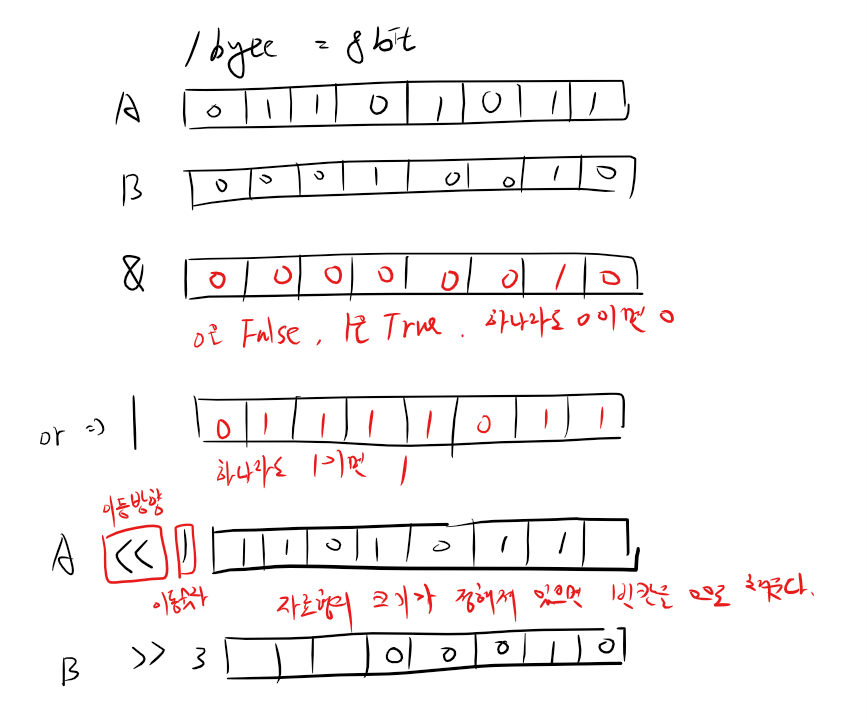 1 byee = 8 bit
A 0 1 1 0 1 0 1 1
B 0 0 0 1 0 0 1 0
& 0 0 0 0 0 0 1 0
0은 False, 1은 True. 하나라도 0이면 0
or => | 0 1 1 1 1 0 1 1
하나라도 1이면 1
이동방향
A << 1 1 1 0 1 0 1 1
이동숫자 자료형의 크기가 정해져 있으면 빈칸을 0으로 채운다.
B >> 3 0 0 0 1 0